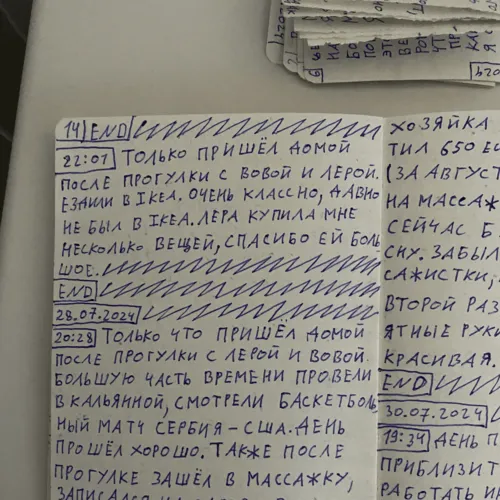 14 END
22:01 ТОЛЬКО ПРИШЁЛ ДОМОЙ
ПОСЛЕ ПРОГУЛКИ С ВОВОЙ И ЛЕРОЙ.
ЕЗДИЛИ В IКЕА. ОЧЕНЬ КЛАССНО, ДАВНО
НЕ БЫЛ В IКЕА. ЛЕРА КУПИЛА МНЕ
НЕСКОЛЬКО ВЕЩЕЙ, СПАСИБО ЕЙ БОЛЬ
ШОЕ.
END
28.07.2024
20:28 ТОЛЬКО ЧТО ПРИШЁЛ ДОМОЙ
ПОСЛЕ ПРОГУЛКИ С ЛЕРОЙ И ВОВОЙ.
БОЛЬШУЮ ЧАСТЬ ВРЕМЕНИ ПРОВЕЛИ
В КАЛЬЯННОЙ, СМОТРЕЛИ БАСКЕТБОЛЬ
НЫЙ МАТЧ СЕРБИЯ - США. ДЕНЬ
ПРОШЁЛ ХОРОШО. ТАКЖЕ ПОСЛЕ
ПРОГУЛКЕ ЗАШЁЛ В МАССАЖКУ,
ЗАПИСАЛСЯ
ХОЗЯЙКА
ТИЛ 650 ЕВ
(ЗА АВГУСТ
НА МАССАЖ
СЕЙЧАС Б
СНУ. ЗАБЫЛ
САЖИСТКИ,
ВТОРОЙ РАЗ
ЯТНЫЕ РУКИ
КРАСИВАЯ.
END
30.07.2024
19:34 ДЕНЬ П
ПРИБЛИЗИТ
РАБОТАТЬ И